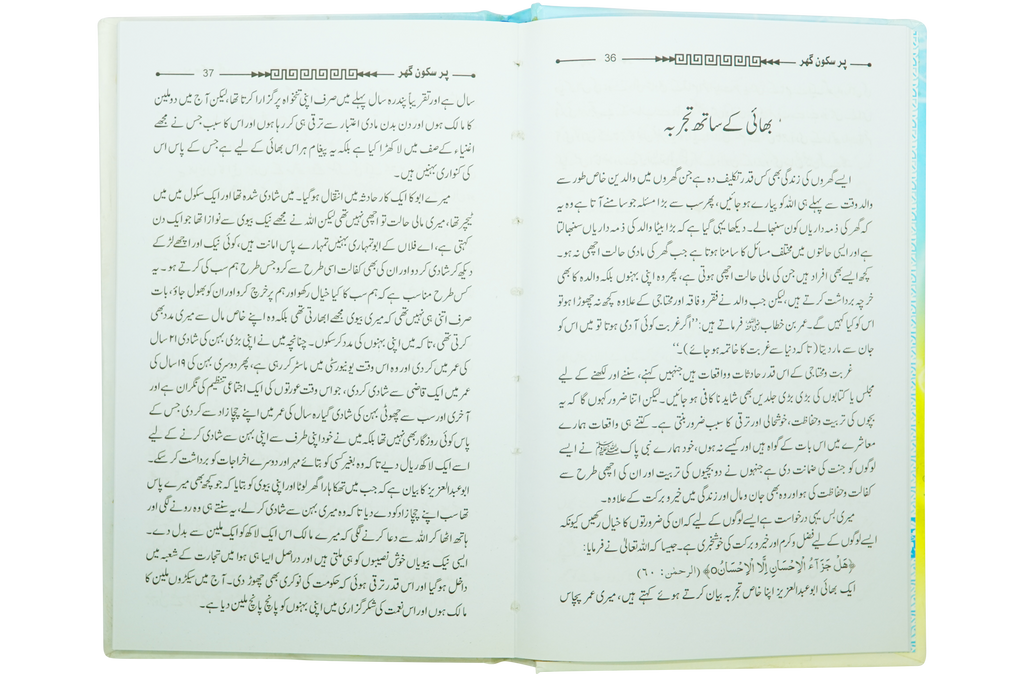 پر سکون گھر 36
بھائی کے ساتھ تجربہ
ایسے گھروں کی زندگی بھی کس قدر تکلیف دہ ہے جن گھروں میں والدین خاص طور سے
والد وقت سے پہلے ہی اللہ کو پیارے ہو جائیں، پھر سب سے بڑا مسئلہ جو سامنے آتا ہے وہ یہ
کہ گھر کی ذمہ داریاں کون سنبھالے۔ دیکھا یہی گیا ہے کہ بڑا بیٹا والد کی ذمہ داریاں سنبھالتا
ہے اور ایسی حالتوں میں مختلف مسائل کا سامنا ہوتا ہے جب گھر کی مادی حالت اچھی نہ ہو۔
کچھ ایسے بھی افراد ہیں جن کی مالی حالت اچھی ہوتی ہے، پھر وہ اپنی بہنوں بلکہ والدہ کا بھی
خرچہ برداشت کرتے ہیں، لیکن جب والد نے فقر و فاقہ اور محتاجی کے علاوہ کچھ نہ چھوڑا ہو تو
اس کو کیا کہیں گے۔ عمر بن خطاب رضی اللہ عنہ فرماتے ہیں: ''اگر غربت کوئی آدمی ہوتا تو میں اس کو
جان سے مار دیتا (تا کہ دنیا سے غربت کا خاتمہ ہو جائے)۔''
غربت و محتاجی کے اس قدر حادثات و واقعات ہیں جنہیں کہنے، سننے اور لکھنے کے لیے
مجلس یا کتابوں کی بڑی بڑی جلدیں بھی شاید نا کافی ہو جائیں۔ لیکن اتنا ضرور کہوں گا کہ یہ
بچوں کی تربیت و حفاظت، خوشحالی اور ترقی کا سبب ضرور بنتی ہے۔ کتنے ہی واقعات ہمارے
معاشرے میں اس بات کے گواہ ہیں اور کیسے نہ ہوں، خود ہمارے نبی پاک ﷺ نے ایسے
لوگوں کو جنت کی ضمانت دی ہے جنہوں نے دو بچیوں کی تربیت اور ان کی اچھی طرح سے
کفالت و حفاظت کی ہو اور وہ بھی جان و مال اور زندگی میں خیر و برکت کے علاوہ۔
میری بس یہی درخواست ہے ایسے لوگوں کے لیے کہ ان کی ضرورتوں کا خیال رکھیں کیونکہ
ایسے لوگوں کے لیے فضل و کرم اور خیر و برکت کی خوشخبری ہے۔ جیسا کہ اللہ تعالیٰ نے فرمایا:
﴿هَلْ جَزَآءُ الْاِحْسَانِ اِلَّا الْاِحْسَانُ۝﴾ (الرحمٰن: ٦٠)
ایک بھائی ابو عبدالعزیز اپنا خاص تجربہ بیان کرتے ہوئے کہتے ہیں، میری عمر پچاس
پر سکون گھر 37
سال ہے اور تقریباً پندرہ سال پہلے میں صرف اپنی تنخواہ پر گزارا کرتا تھا، لیکن آج میں دو ملین
کا مالک ہوں اور دن بدن مادی اعتبار سے ترقی ہی کر رہا ہوں اور اس کا سبب جس نے مجھے
اغنیاء کے صف میں لا کھڑا کیا ہے بلکہ یہ پیغام ہر اس بھائی کے لیے ہے جس کے پاس اس
کی کنواری بہنیں ہیں۔
میرے ابو کا ایک کار حادثہ میں انتقال ہو گیا۔ میں شادی شدہ تھا اور ایک سکول میں میں
ٹیچر تھا، میری مالی حالت تو اچھی نہیں تھی لیکن اللہ نے مجھے نیک بیوی سے نوازا تھا جو ایک دن
کہتی ہے، اے فلاں کے ابو تمہاری بہنیں تمہارے پاس امانت ہیں، کوئی نیک اور اچھے لڑکے
دیکھ کر شادی کر دو اور ان کی بھی کفالت اسی طرح سے کرو جس طرح ہم سب کی کرتے ہو۔ یہ
کس طرح مناسب ہے کہ ہم سب کا کیا خیال رکھو اور ہم پر خرچ کرو اور ان کو بھول جاؤ، بات
صرف اتنی ہی نہیں تھی کہ میری بیوی مجھے ابھارتی تھی بلکہ وہ اپنے خاص مال سے میری مدد بھی
کرتی تھی، تا کہ میں اپنی بہنوں کی مدد کر سکوں۔ چنانچہ میں نے اپنی بڑی بہن کی شادی ۲۱ سال
کی عمر میں کر دی اور وہ اس وقت یونیورسٹی میں ماسٹر کر رہی ہے، پھر دوسری بہن کی ۱۹ سال کی
عمر میں ایک قاضی سے شادی کر دی، جو اس وقت عورتوں کی ایک اجتماعی تنظیم کی نگران ہے اور
آخری اور سب سے چھوٹی بہن کی شادی گیارہ سال کی عمر میں اپنے چچا زاد سے کر دی جس کے
پاس کوئی روزگار بھی نہیں تھا بلکہ میں نے خود اپنی طرف سے اپنی بہن سے شادی کرنے کے لیے
اسے ایک لاکھ ریال دیے تا کہ وہ بغیر کسی کو بتائے مہر اور دوسرے اخراجات کو برداشت کر سکے۔
ابو عبدالعزیز کا بیان ہے کہ جب میں تھکا ہارا گھر لوٹا اور اپنی بیوی کو بتایا کہ جو کچھ بھی میرے پاس
تھا سب اپنے چچا زاد کو دے دیا تا کہ وہ میری بہن سے شادی کر لے، یہ سنتے ہی وہ رونے لگی اور
ہاتھ اٹھا کر اللہ سے دعا کرنے لگی کہ میرے مالک اس ایک لاکھ کو ایک ملین سے بدل دے۔
ایسی نیک بیویاں خوش نصیبوں کو ہی ملتی ہیں اور دراصل ایسا ہی ہوا میں تجارت کے شعبہ میں
داخل ہو گیا اور اس قدر ترقی ہوئی کہ حکومت کی نوکری بھی چھوڑ دی۔ آج میں سیکڑوں ملین کا
مالک ہوں اور اس نعمت کی شکر گزاری میں اپنی بہنوں کو پانچ پانچ ملین دیا ہے۔